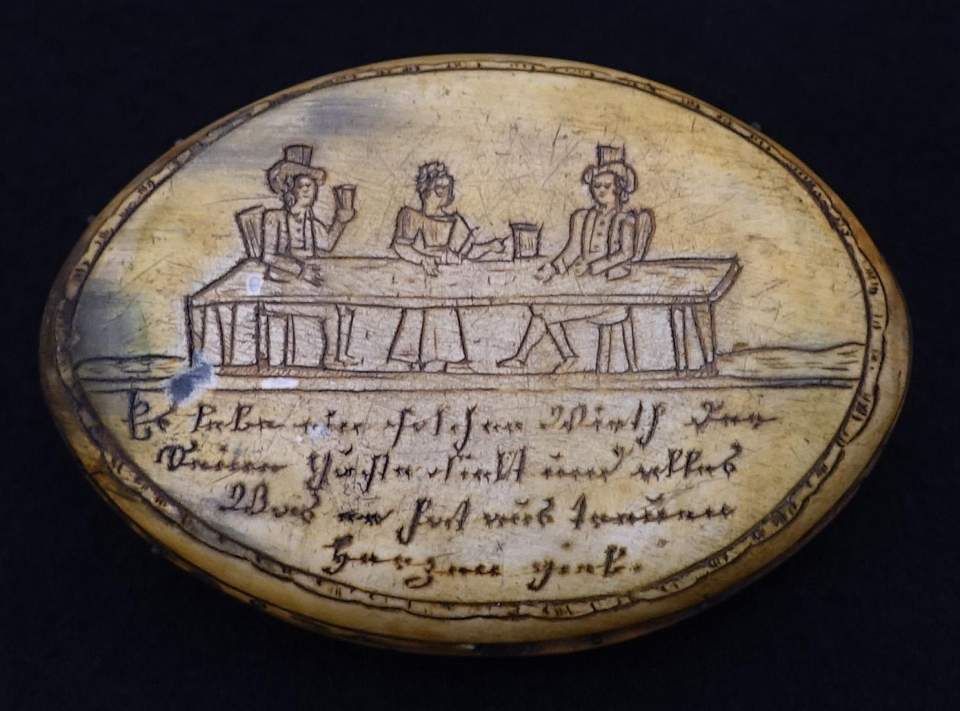 Es lebe ein solcher Wirth Der
Seine Gäste liebt und alles
Was er hat aus treuen
Herzen giebt.